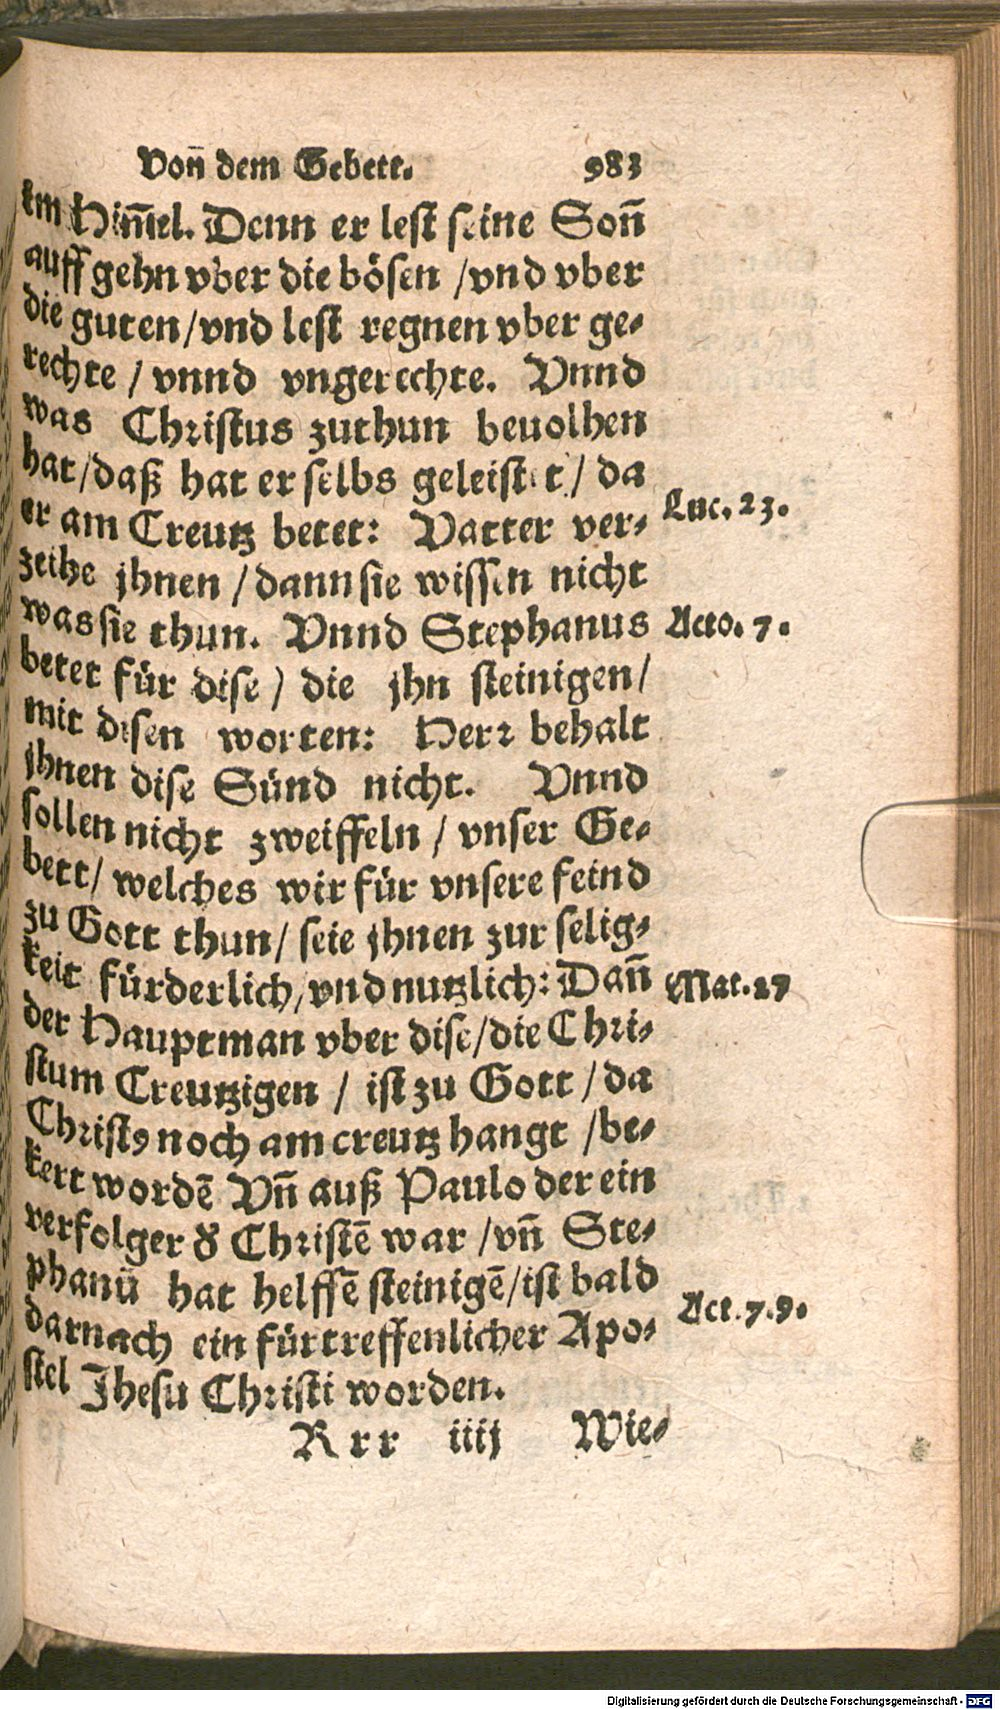 Voñ dem Gebett. 983
im Him̃el. Denn er lest seine Soñ
auff gehn vber die bösen / vnd vber
die guten / vnd lest regnen vber ge⸗
rechte / vnnd vngerechte. Vnnd
was Christus zuthun beuolhen
hat / daß hat er selbs geleistet / da
er am Creutz betet: Vatter ver⸗
Luc. 23.
zeihe jhnen / dann sie wissen nicht
was sie thun. Vnnd Stephanus
Acto. 7.
betet für dise / die jhn steinigen /
mit disen worten: Herr behalt
jhnen dise Sünd nicht. Vnnd
sollen nicht zweiffeln / vnser Ge⸗
bett / welches wir für vnsere feind
zu Gott thun / seie jhnen zur selig⸗
keit fürderlich, vnd nutzlich: Dañ
Mat. 27
der Hauptman vber dise / die Chri⸗
stum Creutzigen / ist zu Gott / da
Christꝰ noch am creutz hangt / be⸗
kert wordẽ Vñ auß Paulo der ein
verfolger d' Christẽ war / vñ Ste⸗
phanũ hat helffẽ steinigẽ / ist bald
darnach ein fürtreffenlicher Apo⸗
Act. 7. 9.
stel Jhesu Christi worden.
Rrr iiij Wie⸗
Digitalisierung gefördert durch die Deutsche Forschungsgemeinschaft - DFG